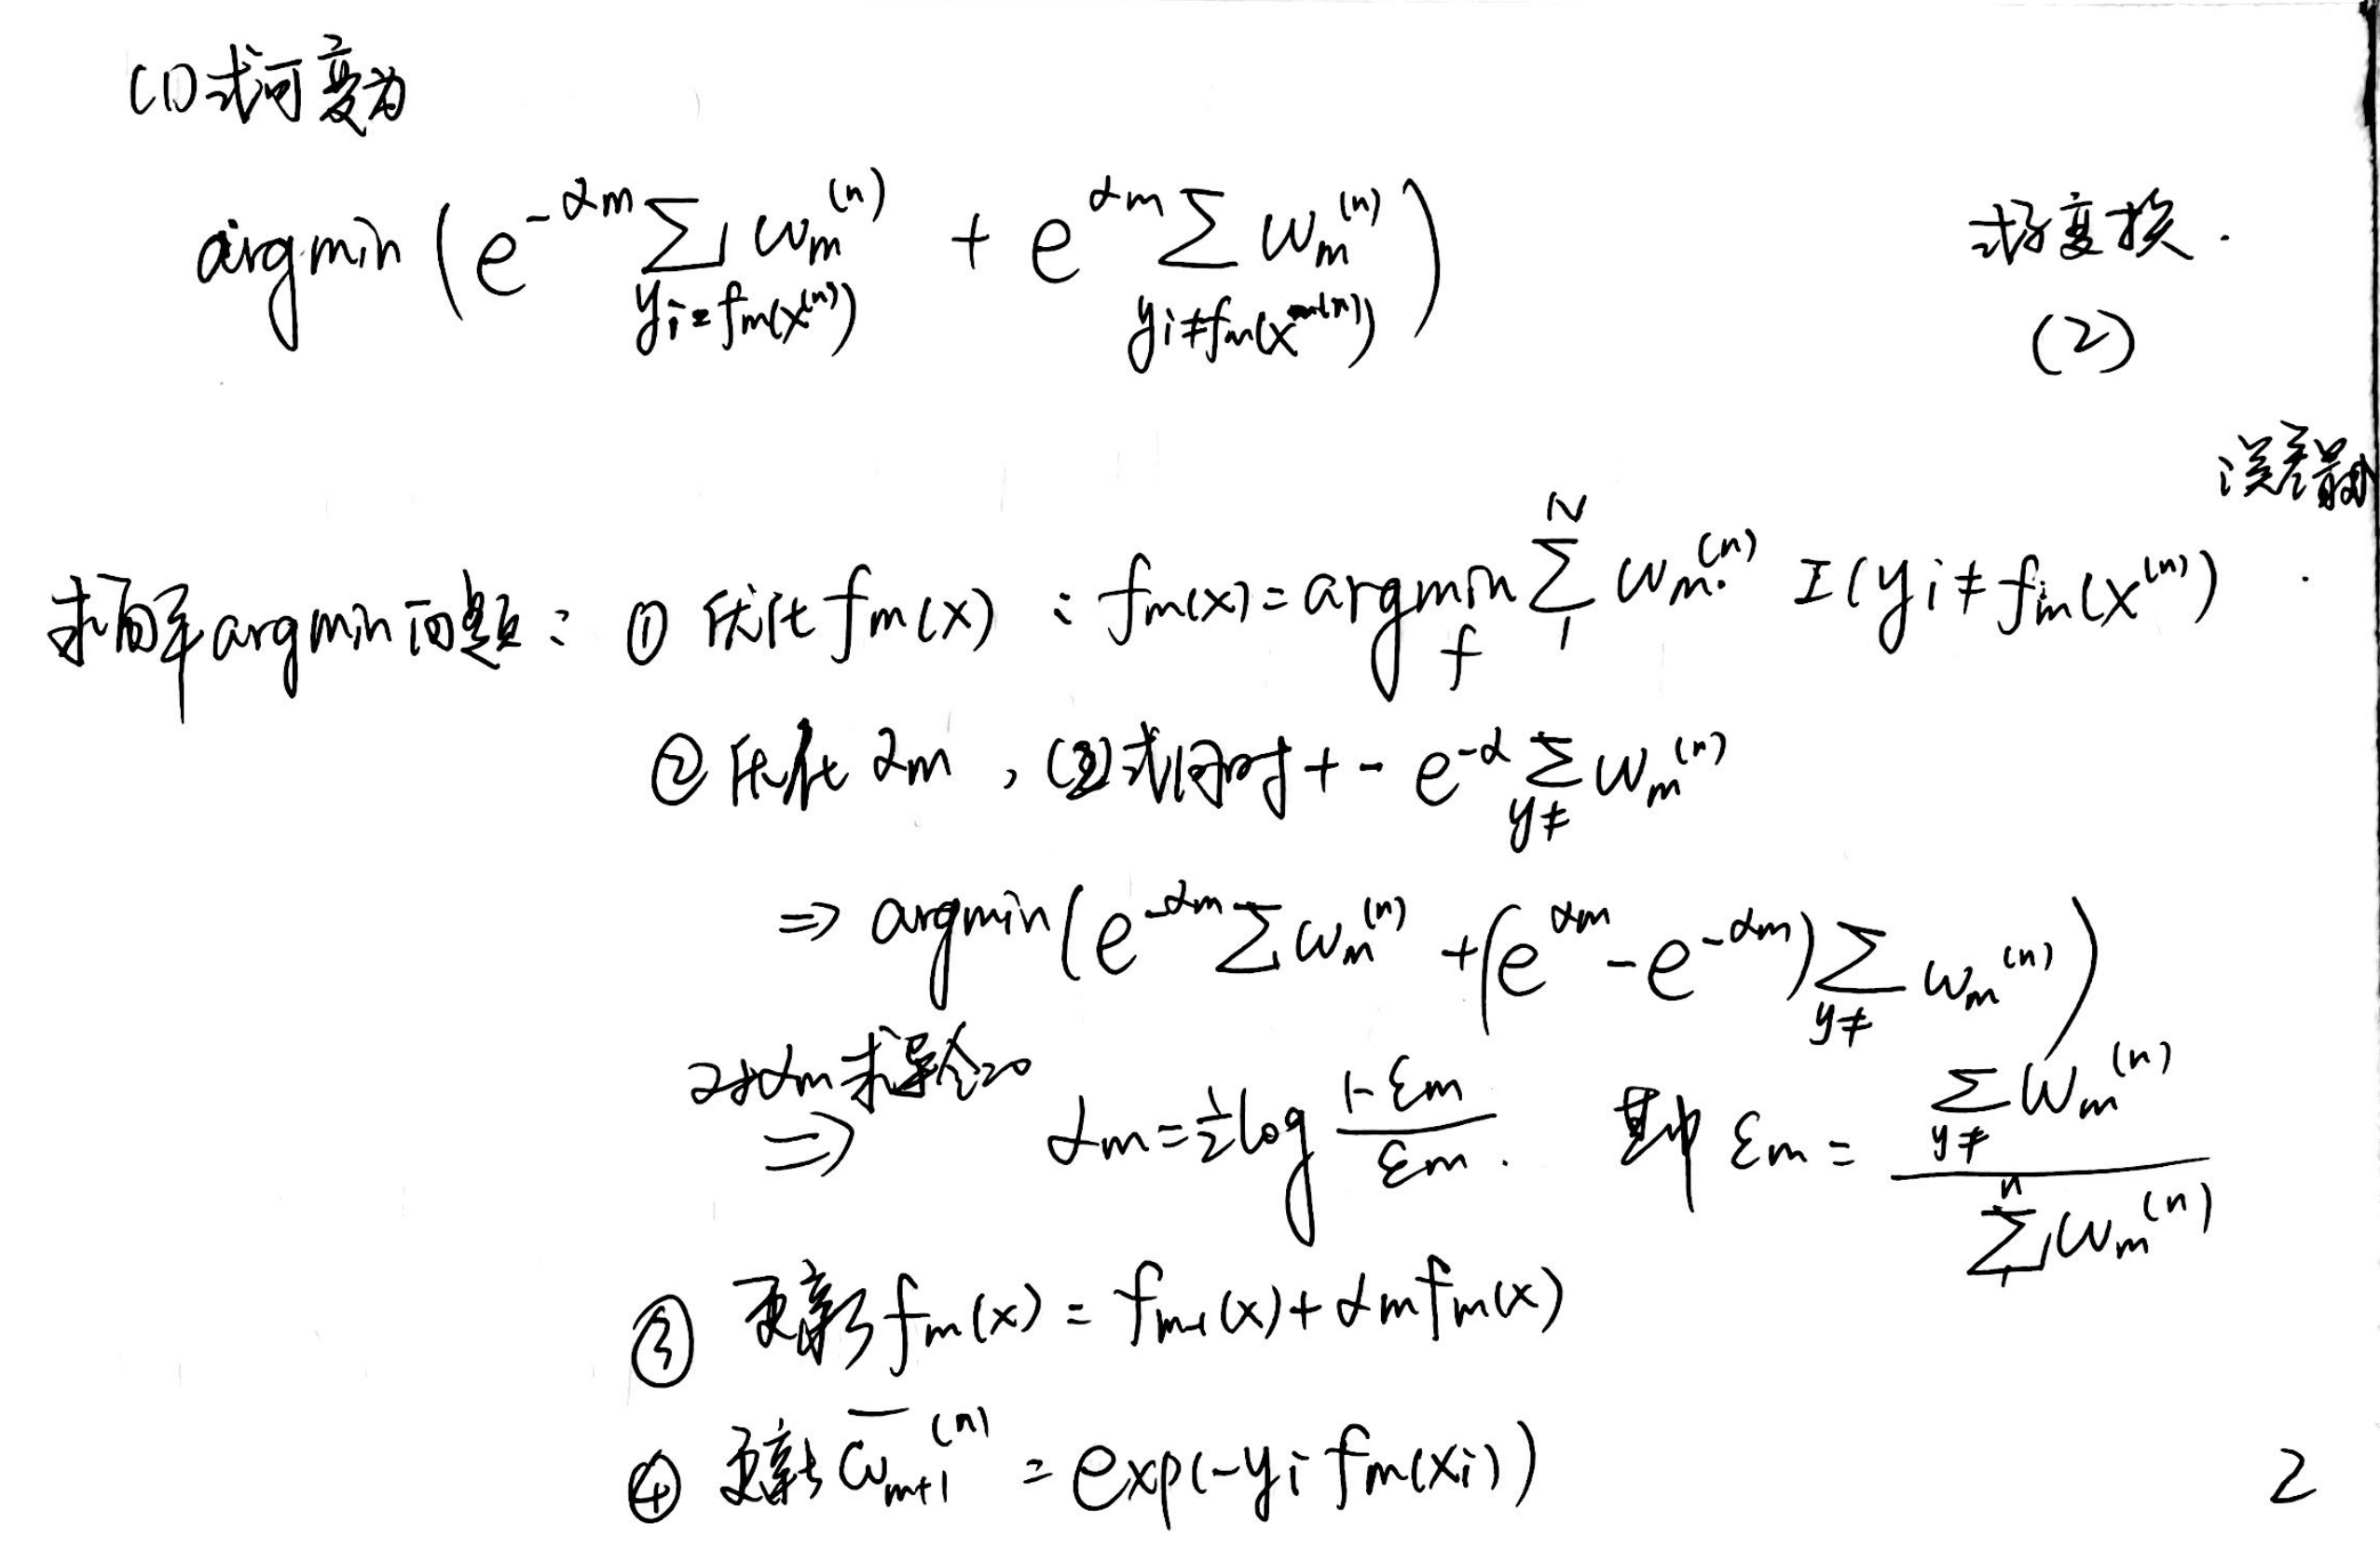 (1)式可变为
argmin (e^{-αm} ∑_{yi=fm(x^{(n)})} wm^{(n)} + e^{αm} ∑_{yi≠fm(x^{(n)})} wm^{(n)}) 式子变换.
(2)
误差最小
求解argmin问题: ① 优化fm(x) : fm(x)=argmin_f ∑_1^N wm^{(n)} I(yi≠fm(x^{(n)})
② 优化 αm , (2)式同时+- e^{-α} ∑_{y≠} wm^{(n)}
⇒ argmin(e^{-αm} ∑ wm^{(n)} + (e^{αm} - e^{-αm}) ∑_{y≠} wm^{(n)})
对αm求导令=0
⇒ αm=½log (1-εm)/(εm). 其中 εm = (∑_{y≠} wm^{(n)})/(∑_1^n wm^{(n)})
③ 更新fm(x) = fm-1(x)+αmfm(x)
④ 更新 w̄_{m+1}^{(n)} = exp(-yi fm(xi))
2